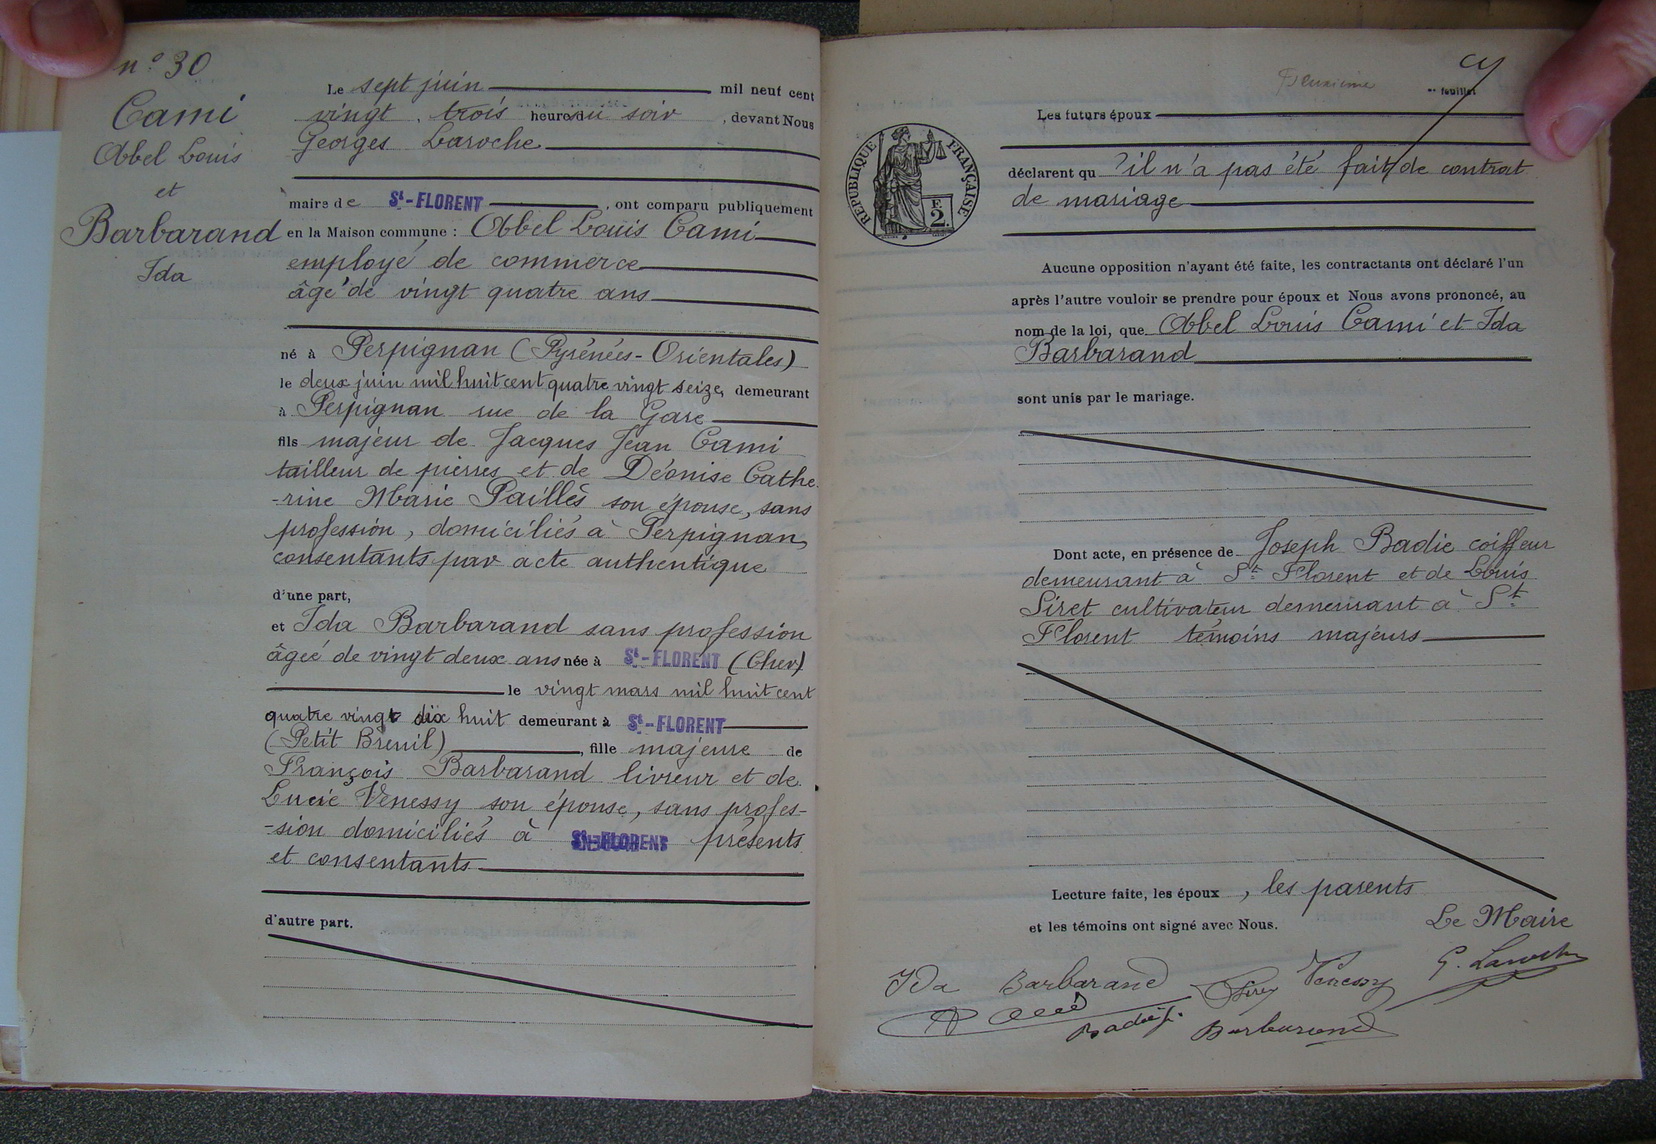 n° 30
Cami
Abbel Louis
et
Barbarand
Ida
Le sept juin mil neuf cent
vingt, trois heures du soir, devant Nous
Georges Laroche
maire de St-FLORENT, ont comparu publiquement
en la Maison commune : Abbel Louis Cami
employé de commerce
âgé de vingt quatre ans
né à Perpignan (Pyrénées-Orientales)
le deux juin mil huit cent quatre vingt seize, demeurant
à Perpignan rue de la Gare
fils majeur de Jacques Jean Cami
tailleur de pierres et de Déonise Cathe
-rine Marie Paillès son épouse, sans
profession, domiciliés à Perpignan,
consentants par acte authentique
d'une part,
et Ida Barbarand sans profession
âgée de vingt deux ans née à St-FLORENT (Cher)
le vingt mars mil huit cent
quatre vingt dix huit demeurant à St-FLORENT
(Petit Breuil), fille majeure de
François Barbarand livreur et de
Lucie Venessy son épouse, sans profes-
-sion domiciliés à St-FLORENT présents
et consentants
d'autre part.
Deuxième feuillet
Les futurs époux
RÉPUBLIQUE FRANÇAISE
F.
2.
déclarent qu'il n'a pas été fait de contrat
de mariage
Aucune opposition n'ayant été faite, les contractants ont déclaré l'un
après l'autre vouloir se prendre pour époux et Nous avons prononcé, au
nom de la loi, que Abbel Louis Cami et Ida
Barbarand
sont unis par le mariage.
Dont acte, en présence de Joseph Badie coiffeur
demeurant à St Florent et de Louis
Siret cultivateur demeurant à St
Florent témoins majeurs
Lecture faite, les époux, les parents
et les témoins ont signé avec Nous.
Le Maire
G. Laroche
Ida Barbarand
Venessy
Barbarand